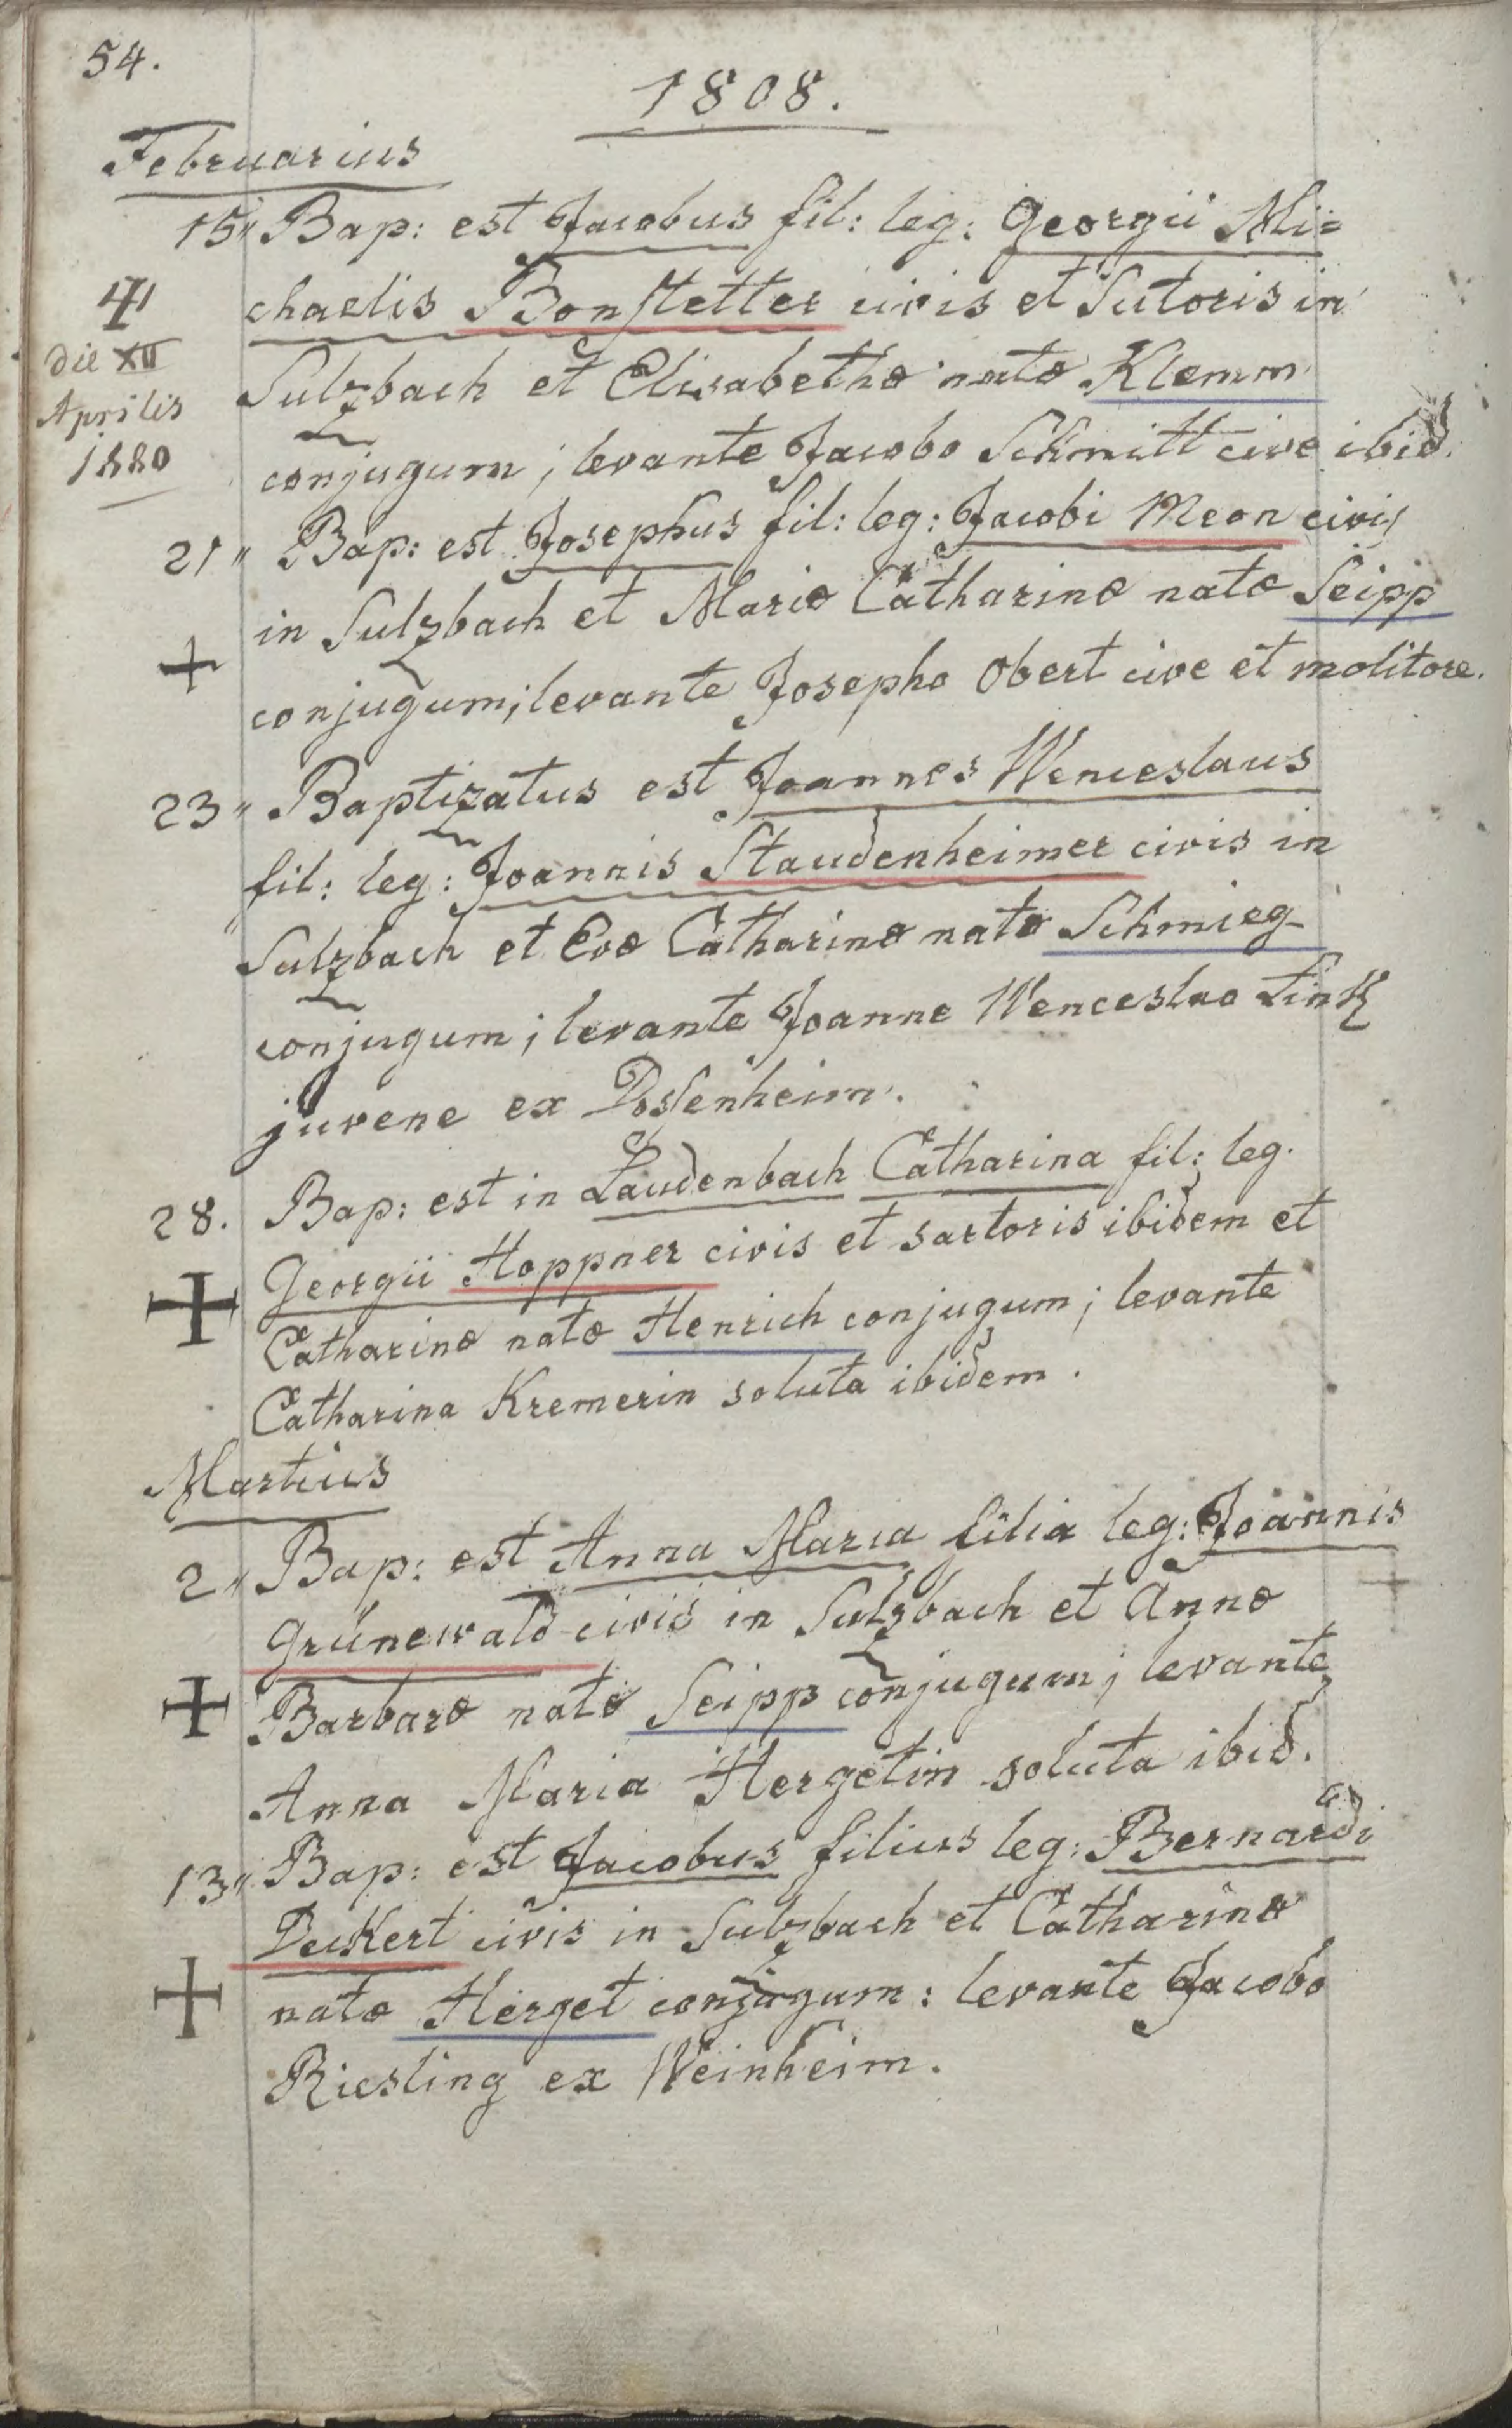 54.
1808.
Februarius
15" Bap: est Jacobus fil: leg: Georgii Mi=
chaelis Bonstetter civis et Sutoris in
Sulzbach et Elisabethæ natæ Klemm
conjugum; levante Jacobo Schmitt cive ibid.
die XII
Aprilis
1880
21" Bap: est Josephus fil: leg: Jacobi Meon civis
in Sulzbach et Mariæ Catharinæ natæ Seipp
conjugum; levante Josepho Obert cive et molitore.
23" Baptizatus est Joannes Wenceslaus
fil: leg: Joannis Staudenheimer civis in
Sulzbach et Evæ Catharinæ natæ Schmieg
conjugum; levante Joanne Wenceslao Link
juvene ex Dossenheim.
28. Bap: est in Laudenbach Catharina fil: leg.
Georgii Hoppner civis et sartoris ibidem et
Catharinæ natæ Henrich conjugum; levante
Catharina Kremerin soluta ibidem.
Martius
2" Bap: est Anna Maria filia leg: Joannis
Grünewald civis in Sulzbach et Annæ
Barbaræ natæ Seipp conjugum; levante
Anna Maria Hergetin soluta ibid.
13" Bap: est Jacobus filius leg: Bernardi
Deckert civis in Sulzbach et Catharinæ
natæ Herget conjugum: levante Jacobo
Riesling ex Weinheim.